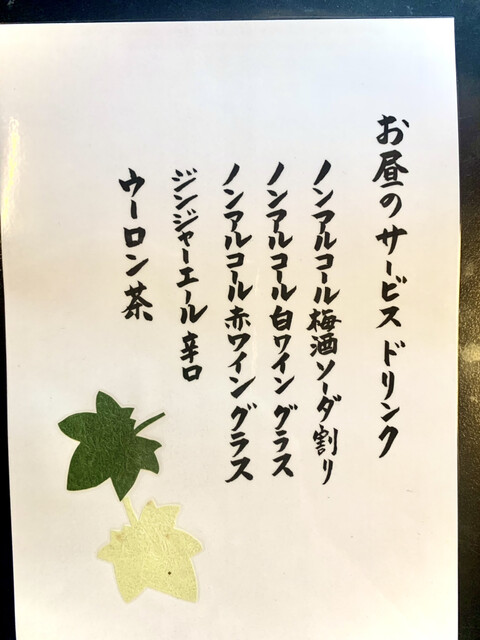 お昼のサービスドリンク
ノンアルコール梅酒ソーダ割り
ノンアルコール白ワイングラス
ノンアルコール赤ワイングラス
ジンジャーエール辛口
ウーロン茶